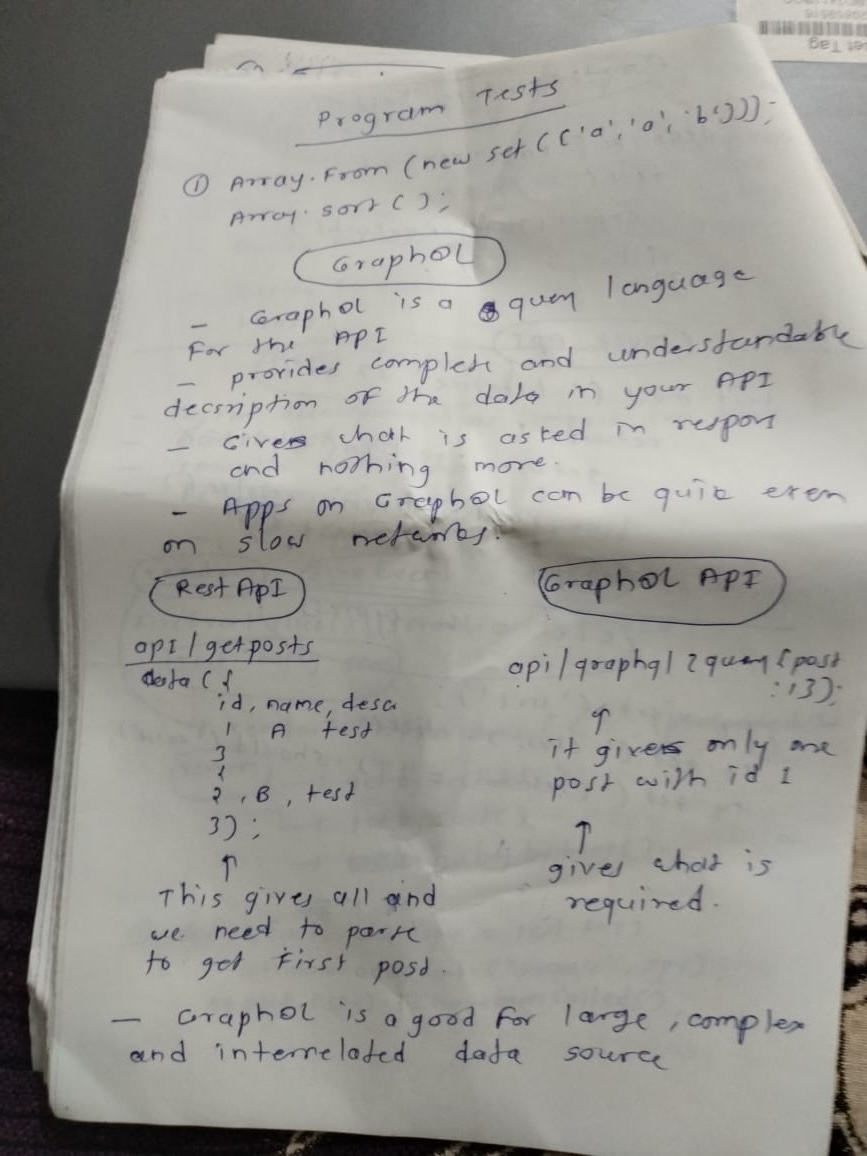 Program Tests
① Array.From (new set (['a', 'a', 'b']));
Array.sort ( );
GraphQL
- GraphQL is a query language
For the API
- provides complete and understandable
decsription of the data in your API
- Gives what is asked in respons
and nothing more.
- Apps on GraphQL can be quik even
on slow networks.
Rest ApI
api/getposts
data ( {
id, name, desc
1 A test
}
{
2, B, test
});
↑
This gives all and
we need to parse
to get First post.
GraphQL API
api/graphql ? query { post
: 1 });
↑
it gives only one
post with id 1
↑
gives what is
required.
- GraphQL is a good For large, complex
and interrelated data source